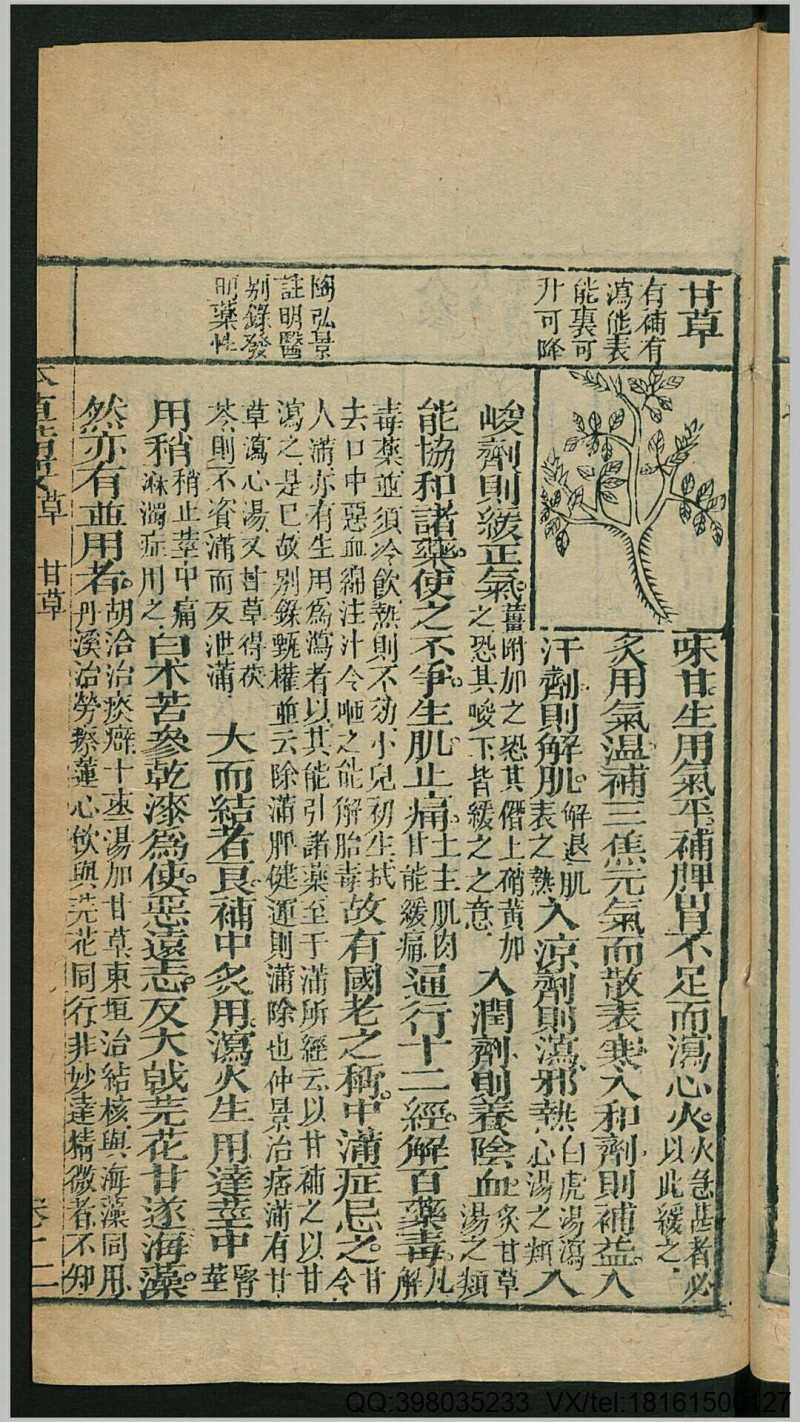 甘草
有補有
瀉能表
能裏可
升可降
陶弘景
註明醫
別錄發
明藥性
味甘生用氣平補脾胃不足而瀉心火火急甚者必
以此緩之
炙用氣温補三焦元氣而散表寒入和劑則補益入
汗劑則解肌解退肌
表之熱入涼劑則瀉邪熱白虎湯瀉
心湯之類入
峻劑則緩正氣薑附加之恐其僭上硝黃加
之恐其峻下皆緩之之意入潤劑則養陰血炙甘草
湯之類
能協和諸藥使之不爭生肌止痛土主肌肉
甘能緩痛通行十二經解百藥毒凡
解
毒藥並須冷飲熱則不効小兒初生拭
去口中惡血綿注汁令咂之能解胎毒故有國老之稱中滿症忌之甘
令
人滿亦有生用為瀉者以其能引諸藥至于滿所經云以甘補之以甘
瀉之是已故別錄甄權並云除滿脾健運則滿除也仲景治痞滿有甘
草瀉心湯又甘草得茯
苓則不資滿而反泄滿大而結者良補中炙用瀉火生用達莖中腎
莖
用稍稍止莖中痛
淋濁症用之白朮苦參乾漆為使惡遠志反大戟芫花甘遂海藻
然亦有並用者胡洽治痰癖十棗湯加甘草東垣治結核與海藻同用
丹溪治勞瘵蓮心飲與芫花同行非妙達精微者不知
本草備要 草 甘草 卷二 二
QQ:398035233 VX/tel:18161500127